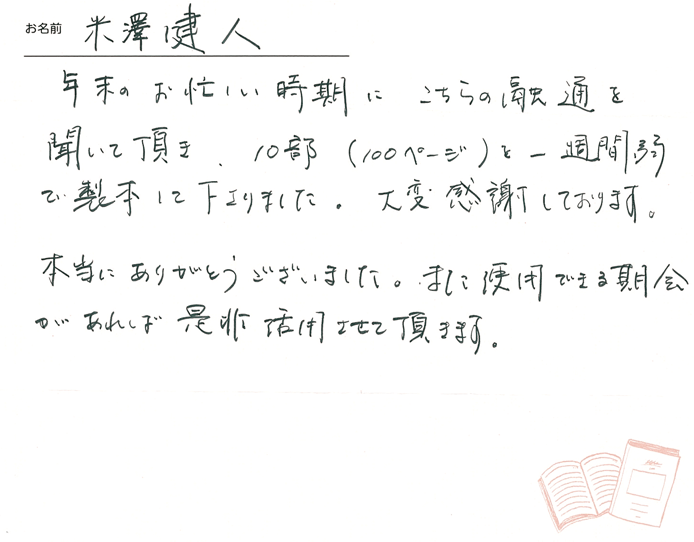 お名前 米澤健人
年末のお忙しい時期に こちらの融通を
聞いて頂き、10部(100ページ)を一週間弱
で製本して下さりました。大変感謝しております。
本当にありがとうございました。また使用できる期会
があれば是非活用させて頂きます。